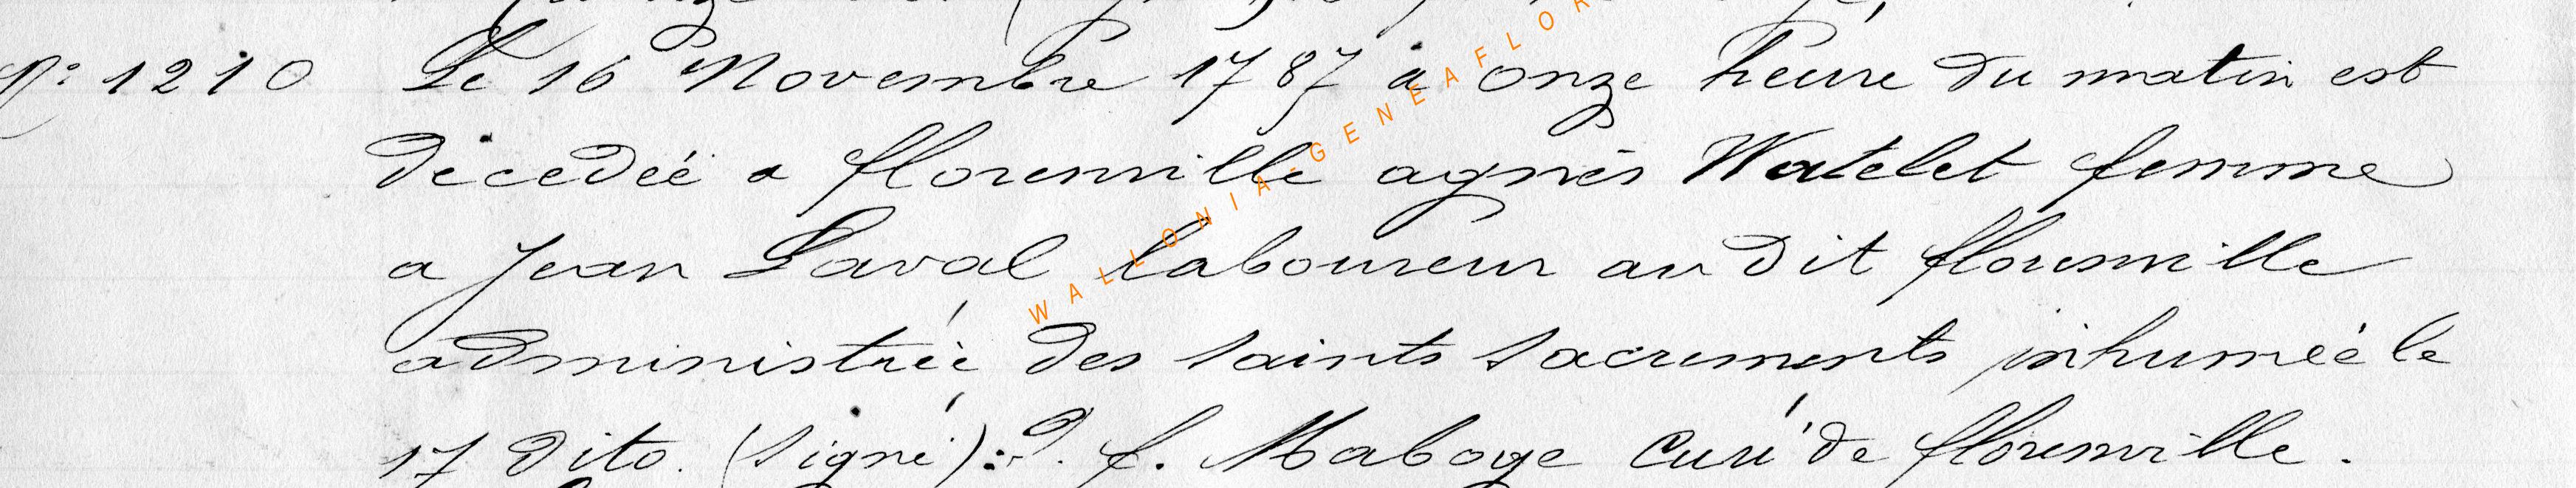 N° 1210 Le 16 Novembre 1787 à onze heure du matin est
décedéé a florenville agnès Watelet femme
a Jean Laval laboureur au dit florenville
administrée des saints sacrements inhumée le
17 dito. (signé): D. f. Maboge Curé de florenville.
WALLONIA-GENEAFLOR